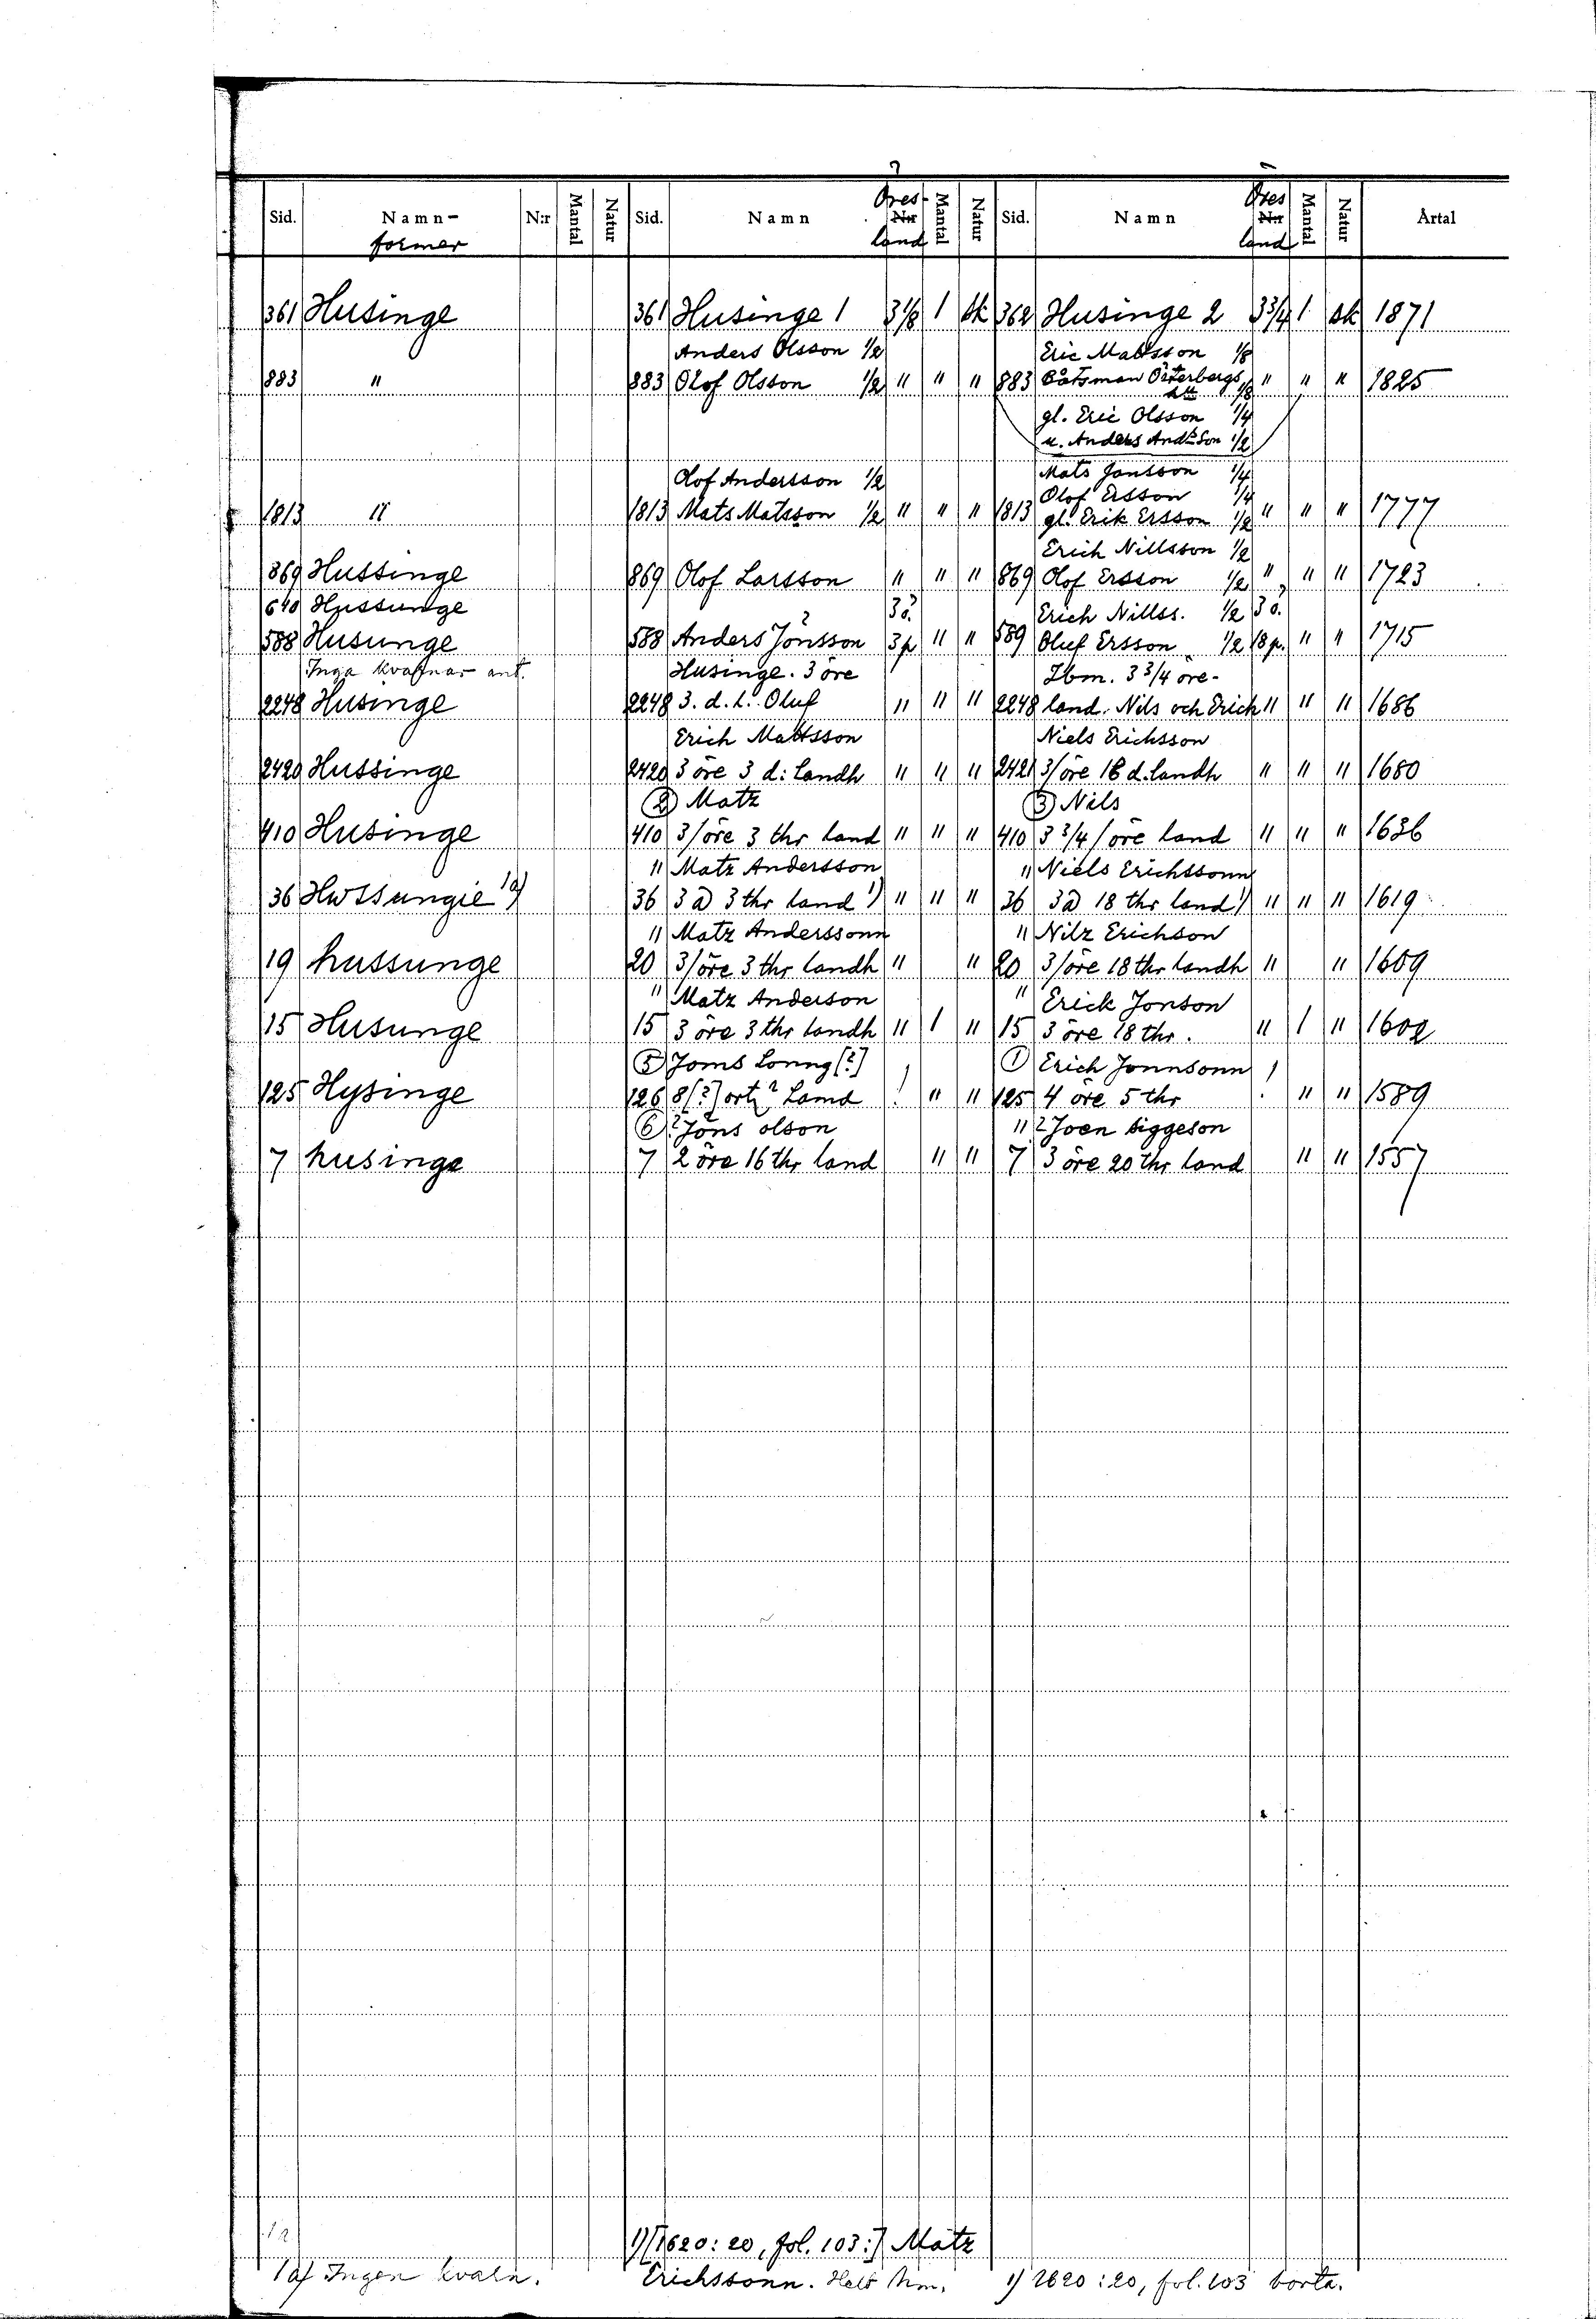 Sid. Namn- N:r Mantal Natur Sid. Namn Öres- N:r Mantal Natur Sid. Namn Öres N:r Mantal Natur Årtal
former land land
361 Husinge 361 Husinge 1 3 1/8 1 sk 362 Husinge 2 3 3/4 1 sk 1871
Anders Olsson 1/2 Eric Matsson 1/8
883 " 883 Olof Olsson 1/2 " " " 883 Båtsman Österbergs " " " 1825
1/8
gl. Eric Olsson 1/4
u. Anders And:Son 1/2
Olof Andersson 1/2 Mats Jansson 1/4
Olof Ersson 1/4
1813 " 1813 Mats Matsson 1/2 " " " 1813 gl. Erik Ersson 1/2 " " " 1777
Erich Nillsson 1/2
869 Hussinge 869 Olof Larsson " " " 869 Olof Ersson 1/2 " " " 1723
640 Hussunge 3ö. Erich Nillss. 1/2 3ö.
588 Husunge 588 Anders Jönsson 3p " " 589 Oluf Ersson 1/2 18p. " " 1715
Inga kvarnar ant. Husinge. 3 öre Ibm. 3 3/4 öre-
2248 Husinge 2248 3. d. L. Oluf " " " 2248 land. Nils och Erich " " " 1686
Erich Mattsson Niels Erichsson
2420 Hussinge 2420 3 öre 3 d: Landh " " " 2421 3/öre 18 d. landh " " " 1680
2) Matz 3) Nils
410 Husinge 410 3/öre 3 thr land " " " 410 3 3/4/öre land " " " 1636
" Matz Andersson " Niels Erichssonn
36 Hwssungie 1a) 36 3 a 3 thr land 1) " " " 36 3 a 18 thr land 1) " " " 1619
" Matz Anderssonn " Nilz Erichson
19 hussunge 20 3/öre 3 thr landh " " 20 3/öre 18 thr landh " " 1609
" Matz Anderson " Erick Jonson
15 Husunge 15 3 öre 3 thr landh " 1 " 15 3 öre 18 thr. " 1 " 1602
5) Joms Lonng [?] 1) Erich Jonnsonn !
125 Hysinge 126 8 [?] ort? Lamd ! " " 125 4 öre 5 thr " " 1589
6)? Jöns olson " ? Joen siggeson
7 husinge 7 2 öre 16 thr land " " 7 3 öre 20 thr land " " 1557
1a)
1) [1620: 20, fol. 103:] Matz
1a) Ingen kvarn. Erichssonn. Helt hm. 1) 1620 : 20, fol. 103 borta.